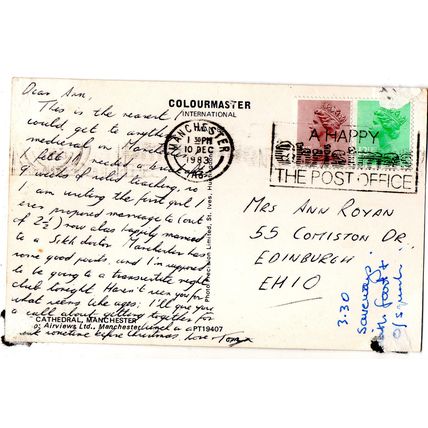 Dear Ann,
This is the nearest I
could get to anything
medieval in Manchester
(felt I needed a break
weeks of solid teaching, is
I am visiting the first girl I
ever proposed marriage to (out
of 2½) now also happily married
to a Sikh doctor. Manchester has
some good pards, and I'm supposed
to be going to a transvestite night
club tonight. Haven't seen you for
what seems like ages. I'll give you
a call about getting together for
lunch or a
sometime before Christmas. Love Tom x
CATHEDRAL, MANCHESTER
Airviews Ltd., Manchester
PT19407
COLOURMASTER
INTERNATIONAL
Photo Precision Limited, St. Ives, Hunt
MANCHESTER
PM
10 DEC
1983
A HAPPY
THE POST OFFICE
MRS ANN ROYAN
55 COMISTON DR
EDINBURGH
EH10
3.30
o/squash